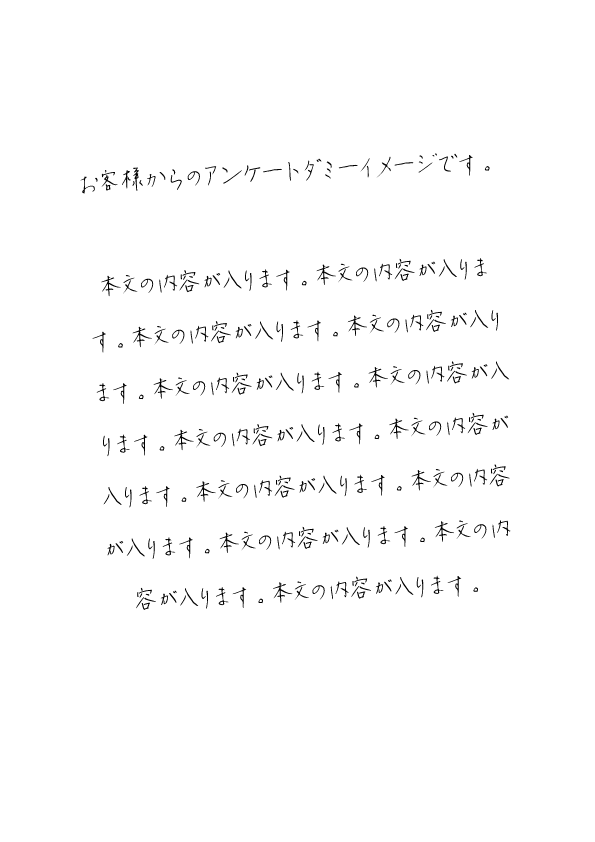 お客様からのアンケートダミーイメージです。
本文の内容が入ります。本文の内容が入りま
す。本文の内容が入ります。本文の内容が入り
ます。本文の内容が入ります。本文の内容が入
ります。本文の内容が入ります。本文の内容が
入ります。本文の内容が入ります。本文の内容
が入ります。本文の内容が入ります。本文の内
容が入ります。本文の内容が入ります。